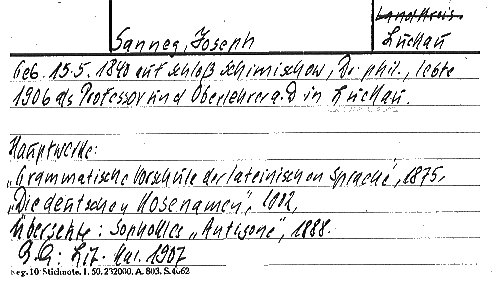 Sanneg, Joseph
Landkreis
Luckau
Geb. 15.5.1840 auf Schloß Schimischow, Dr. phil., lebte
1906 als Professor und Oberlehrer a.D in Luckau.
Hauptwerke:
„Grammatische Vorschule der lateinischen Sprache", 1875,
„Die deutschen Hosenamen", 1902,
Übersetzte: Sophokles „Antigone", 1888.
Lit. Kal. 1907
Reg. 10 Stichnote. I. 50. 232000. A. 803. S. 4662